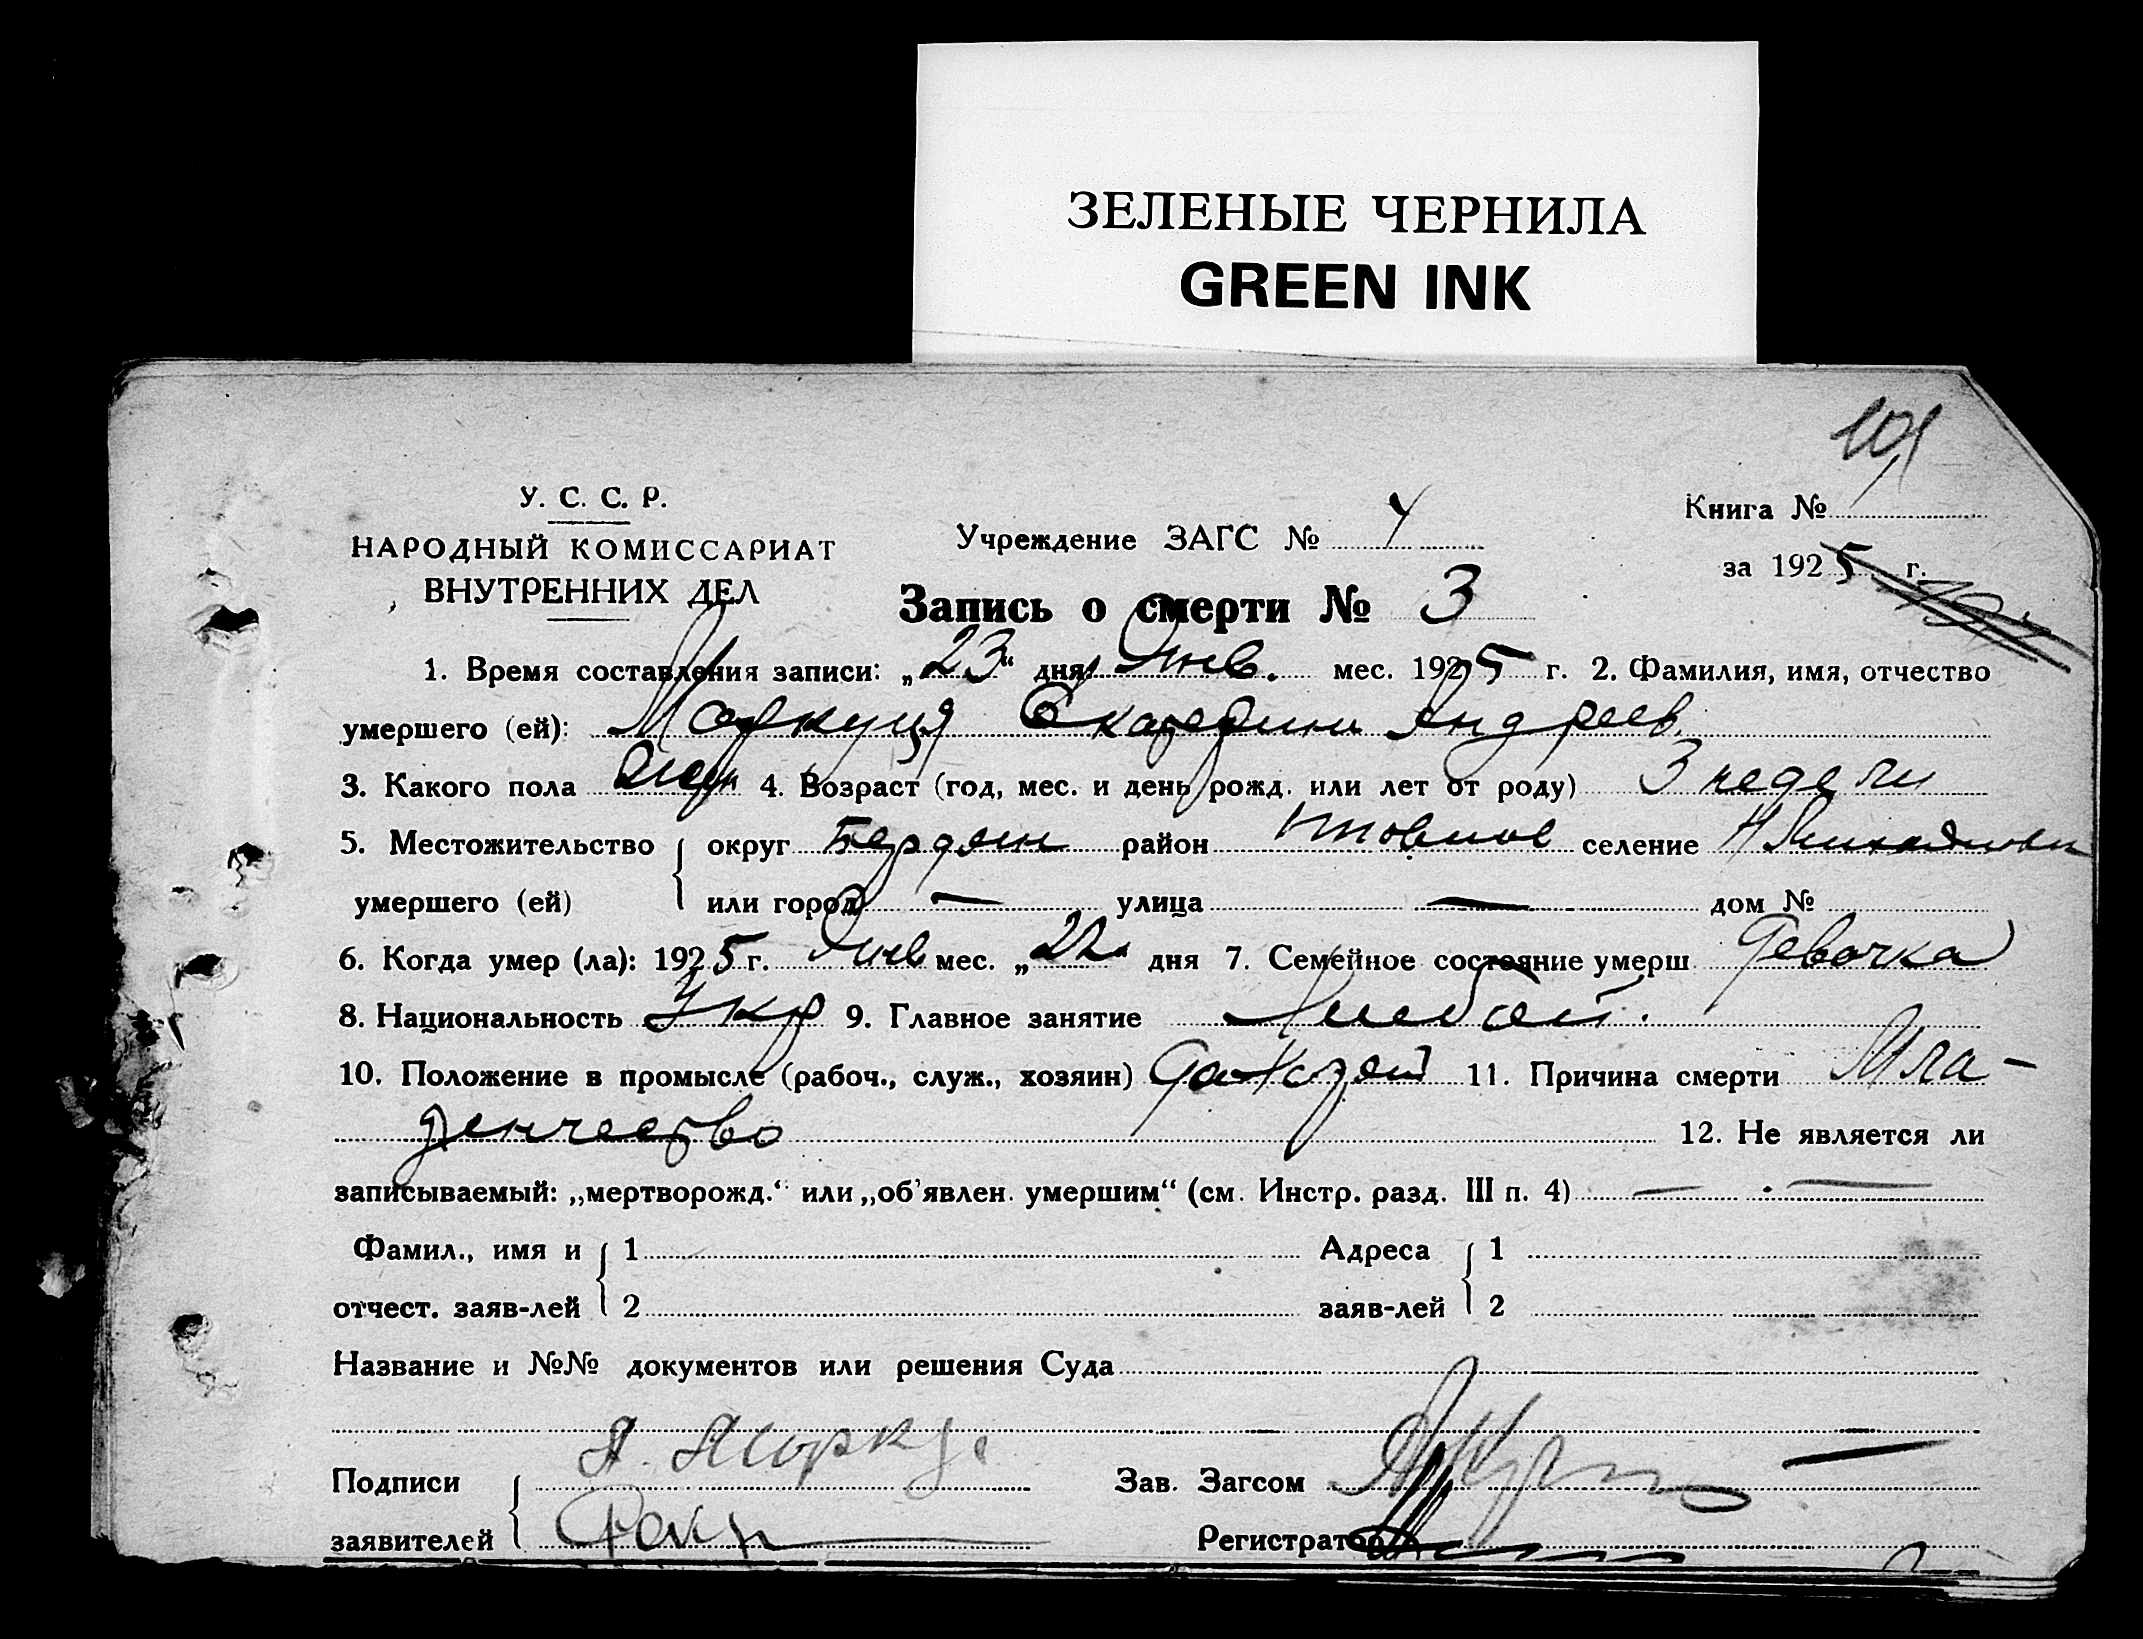 ЗЕЛЕНЫЕ ЧЕРНИЛА
GREEN INK
101
У. С. С. Р.
НАРОДНЫЙ КОМИССАРИАТ
ВНУТРЕННИХ ДЕЛ
Учреждение ЗАГС № 4
Книга №
за 1925 г.
Запись о смерти № 3
1. Время составления записи: „23“ дня Янв. мес. 1925 г. 2. Фамилия, имя, отчество
умершего (ей): Маркуця Екатерини Андреев.
3. Какого пола 4. Возраст (год, мес. и день рожд. или лет от роду) 3 недели
5. Местожительство округ Бердян район селение
умершего (ей) или город — улица — дом №
6. Когда умер (ла): 1925 г. Янв мес. „22“ дня 7. Семейное состояние умерш девочка
8. Национальность Укр 9. Главное занятие
10. Положение в промысле (рабоч., служ., хозяин) 11. Причина смерти Мла-
денчество 12. Не является ли
записываемый: „мертворожд.“ или „об’явлен. умершим“ (см. Инстр. разд. III п. 4) — —
Фамил., имя и 1 Адреса 1
отчест. заяв-лей 2 заяв-лей 2
Название и №№ документов или решения Суда
Подписи А. Марку. Зав. Загсом
заявителей Регистратор